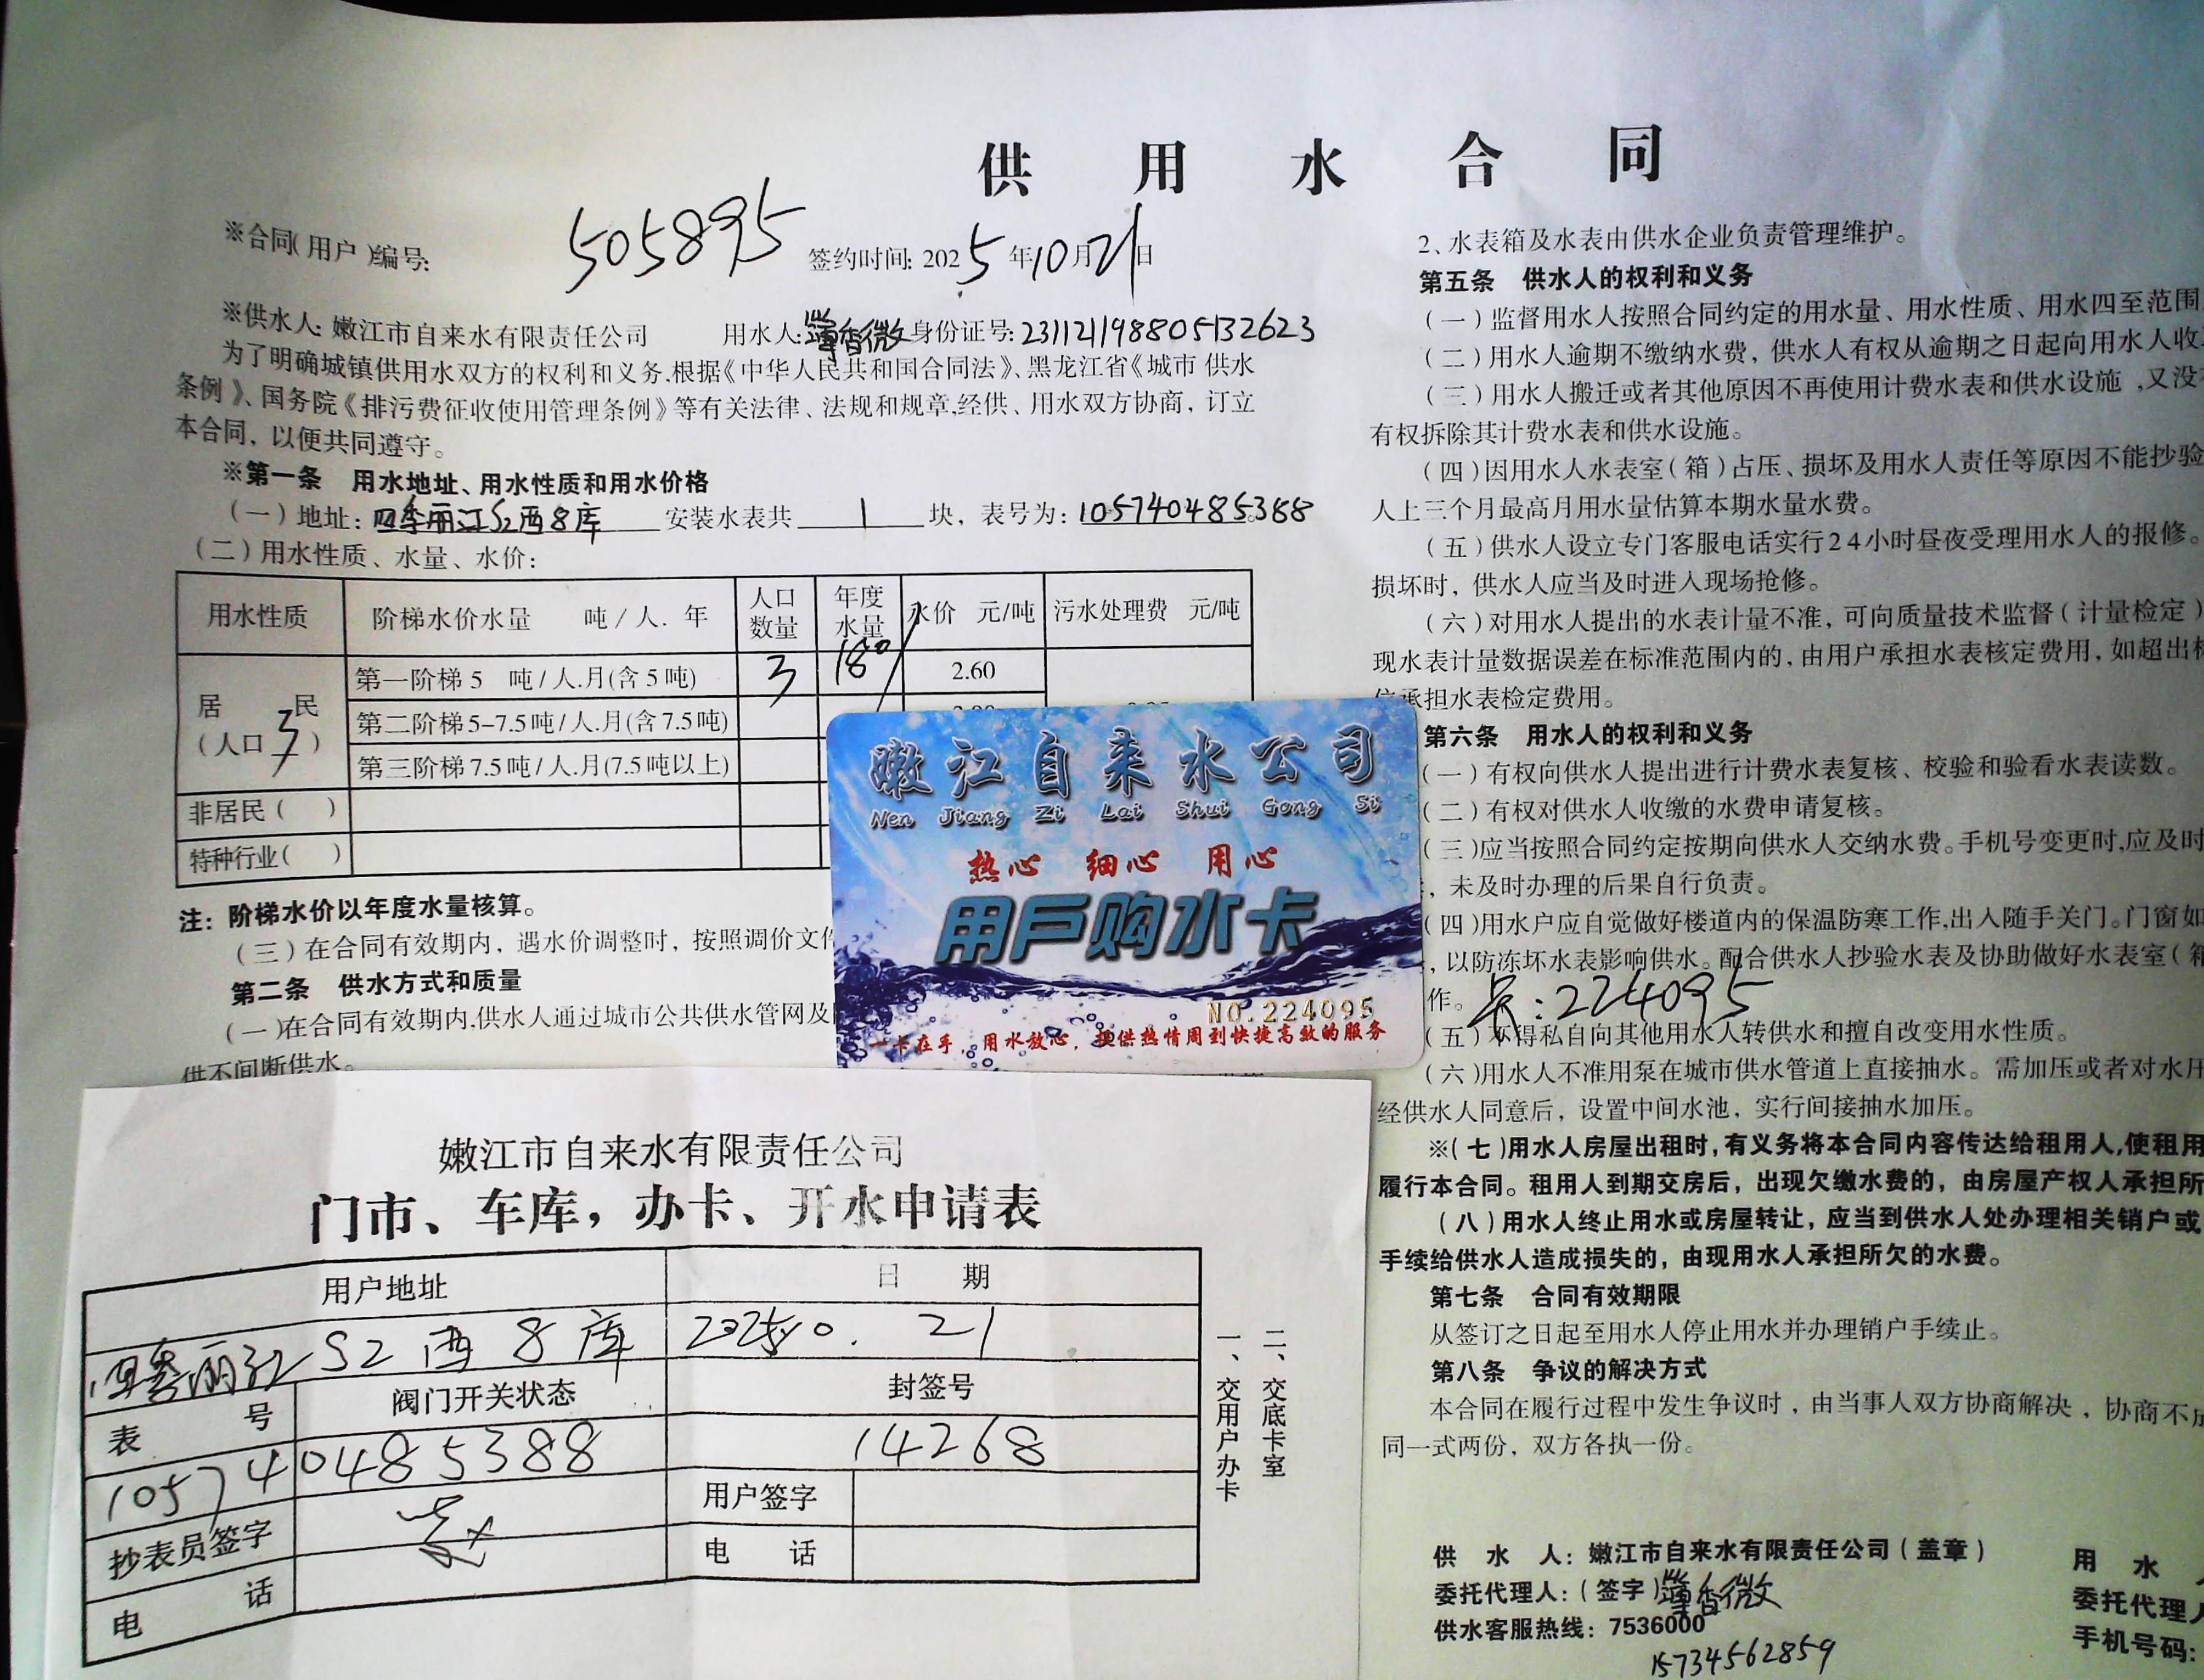 供 用 水 合 同
※合同(用户)编号: 505895 签约时间: 2025年10月21日
※供水人: 嫩江市自来水有限责任公司 用水人: 薄香微 身份证号: 231121198805132623
为了明确城镇供用水双方的权利和义务,根据《中华人民共和国合同法》、黑龙江省《城市 供水
条例》、国务院《排污费征收使用管理条例》等有关法律、法规和规章,经供、用水双方协商，订立
本合同，以便共同遵守。
※第一条 用水地址、用水性质和用水价格
(一)地址: 四季丽江S2西8库 安装水表共 1 块，表号为: 105740485388
(二)用水性质、水量、水价:
用水性质 阶梯水价水量 吨/人. 年 人口数量 年度水量 水价 元/吨 污水处理费 元/吨
居民(人口3) 第一阶梯5 吨/人.月(含5吨) 3 180 2.60
第二阶梯5-7.5吨/人.月(含7.5吨)
第三阶梯7.5吨/人.月(7.5吨以上)
非居民( )
特种行业( )
注: 阶梯水价以年度水量核算。
(三)在合同有效期内，遇水价调整时，按照调价文件
第二条 供水方式和质量
(一)在合同有效期内,供水人通过城市公共供水管网及
供不间断供水。
嫩江自来水公司
Nen Jiang Zi Lai Shui Gong Si
热心 细心 用心
用户购水卡
NO.224095
一卡在手，用水放心，提供热情周到快捷高效的服务
嫩江市自来水有限责任公司
门市、车库，办卡、开水申请表
用户地址 日 期
四季丽江S2西8库 2025.10.21
表 号 阀门开关状态 封签号
105740485388 14268
抄表员签字 用户签字
电 话 电 话
一、交用户办卡
二、交底卡室
2、水表箱及水表由供水企业负责管理维护。
第五条 供水人的权利和义务
(一)监督用水人按照合同约定的用水量、用水性质、用水四至范围
(二)用水人逾期不缴纳水费，供水人有权从逾期之日起向用水人收
(三)用水人搬迁或者其他原因不再使用计费水表和供水设施 ,又没
有权拆除其计费水表和供水设施。
(四)因用水人水表室(箱)占压、损坏及用水人责任等原因不能抄验
人上三个月最高月用水量估算本期水量水费。
(五)供水人设立专门客服电话实行24小时昼夜受理用水人的报修。
损坏时，供水人应当及时进入现场抢修。
(六)对用水人提出的水表计量不准，可向质量技术监督(计量检定)
现水表计量数据误差在标准范围内的，由用户承担水表核定费用，如超出
位承担水表检定费用。
第六条 用水人的权利和义务
(一)有权向供水人提出进行计费水表复核、校验和验看水表读数。
(二)有权对供水人收缴的水费申请复核。
(三)应当按照合同约定按期向供水人交纳水费。手机号变更时,应及时
，未及时办理的后果自行负责。
(四)用水户应自觉做好楼道内的保温防寒工作,出入随手关门。门窗如
，以防冻坏水表影响供水。配合供水人抄验水表及协助做好水表室(箱
作。 卡:224095
(五)不得私自向其他用水人转供水和擅自改变用水性质。
(六)用水人不准用泵在城市供水管道上直接抽水。需加压或者对水压
经供水人同意后，设置中间水池，实行间接抽水加压。
※(七)用水人房屋出租时,有义务将本合同内容传达给租用人,使租用
履行本合同。租用人到期交房后，出现欠缴水费的，由房屋产权人承担所
(八)用水人终止用水或房屋转让，应当到供水人处办理相关销户或
手续给供水人造成损失的，由现用水人承担所欠的水费。
第七条 合同有效期限
从签订之日起至用水人停止用水并办理销户手续止。
第八条 争议的解决方式
本合同在履行过程中发生争议时，由当事人双方协商解决，协商不成
同一式两份，双方各执一份。
供 水 人: 嫩江市自来水有限责任公司(盖章)
委托代理人: (签字) 薄香微
供水客服热线: 7536000
15734562859
用 水
委托代理人
手机号码: